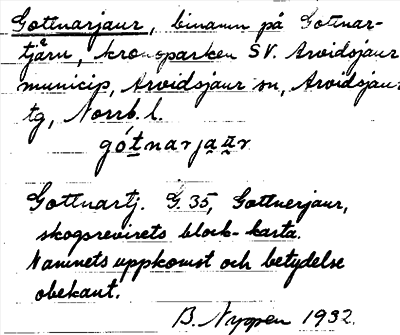 Gottnarjaur, binamn på Gottnar-
tjärn, kronoparken SV. Arvidsjaur
municip, Arvidsjaur sn, Arvidsjaur
tg, Norrb. l.
gótnarjaur
Gottnartj. G. 35, Gottnerjaur,
skogsrevirets block-karta.
Namnets uppkomst och betydelse
obekant.
B. Nyppen 1932.